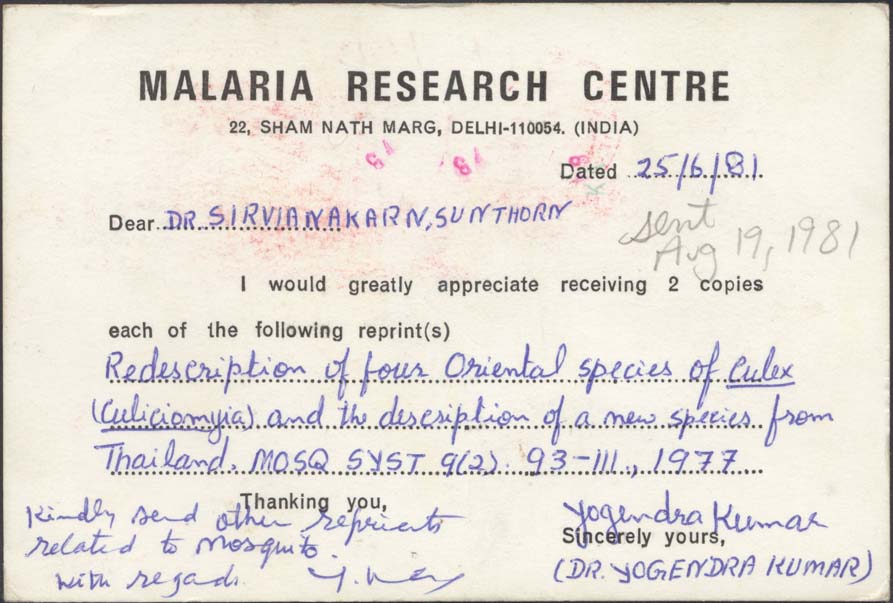 MALARIA RESEARCH CENTRE
22, SHAM NATH MARG, DELHI-110054. (INDIA)
Dated 25/6/81
Dear DR. SIRVIANAKARN, SUNTHORN
sent
Aug 19, 1981
I would greatly appreciate receiving 2 copies
each of the following reprint(s)
Redescription of four Oriental species of Culex
(Culiciomyia) and the descsiption of a new species from
Thailand. MOSQ SYST 9(2). 93-111., 1977
Thanking you,
Kindly send other reprints
related to Mosquito.
with regards
Yogendra Kumar
Sincerely yours,
(DR. YOGENDRA KUMAR)